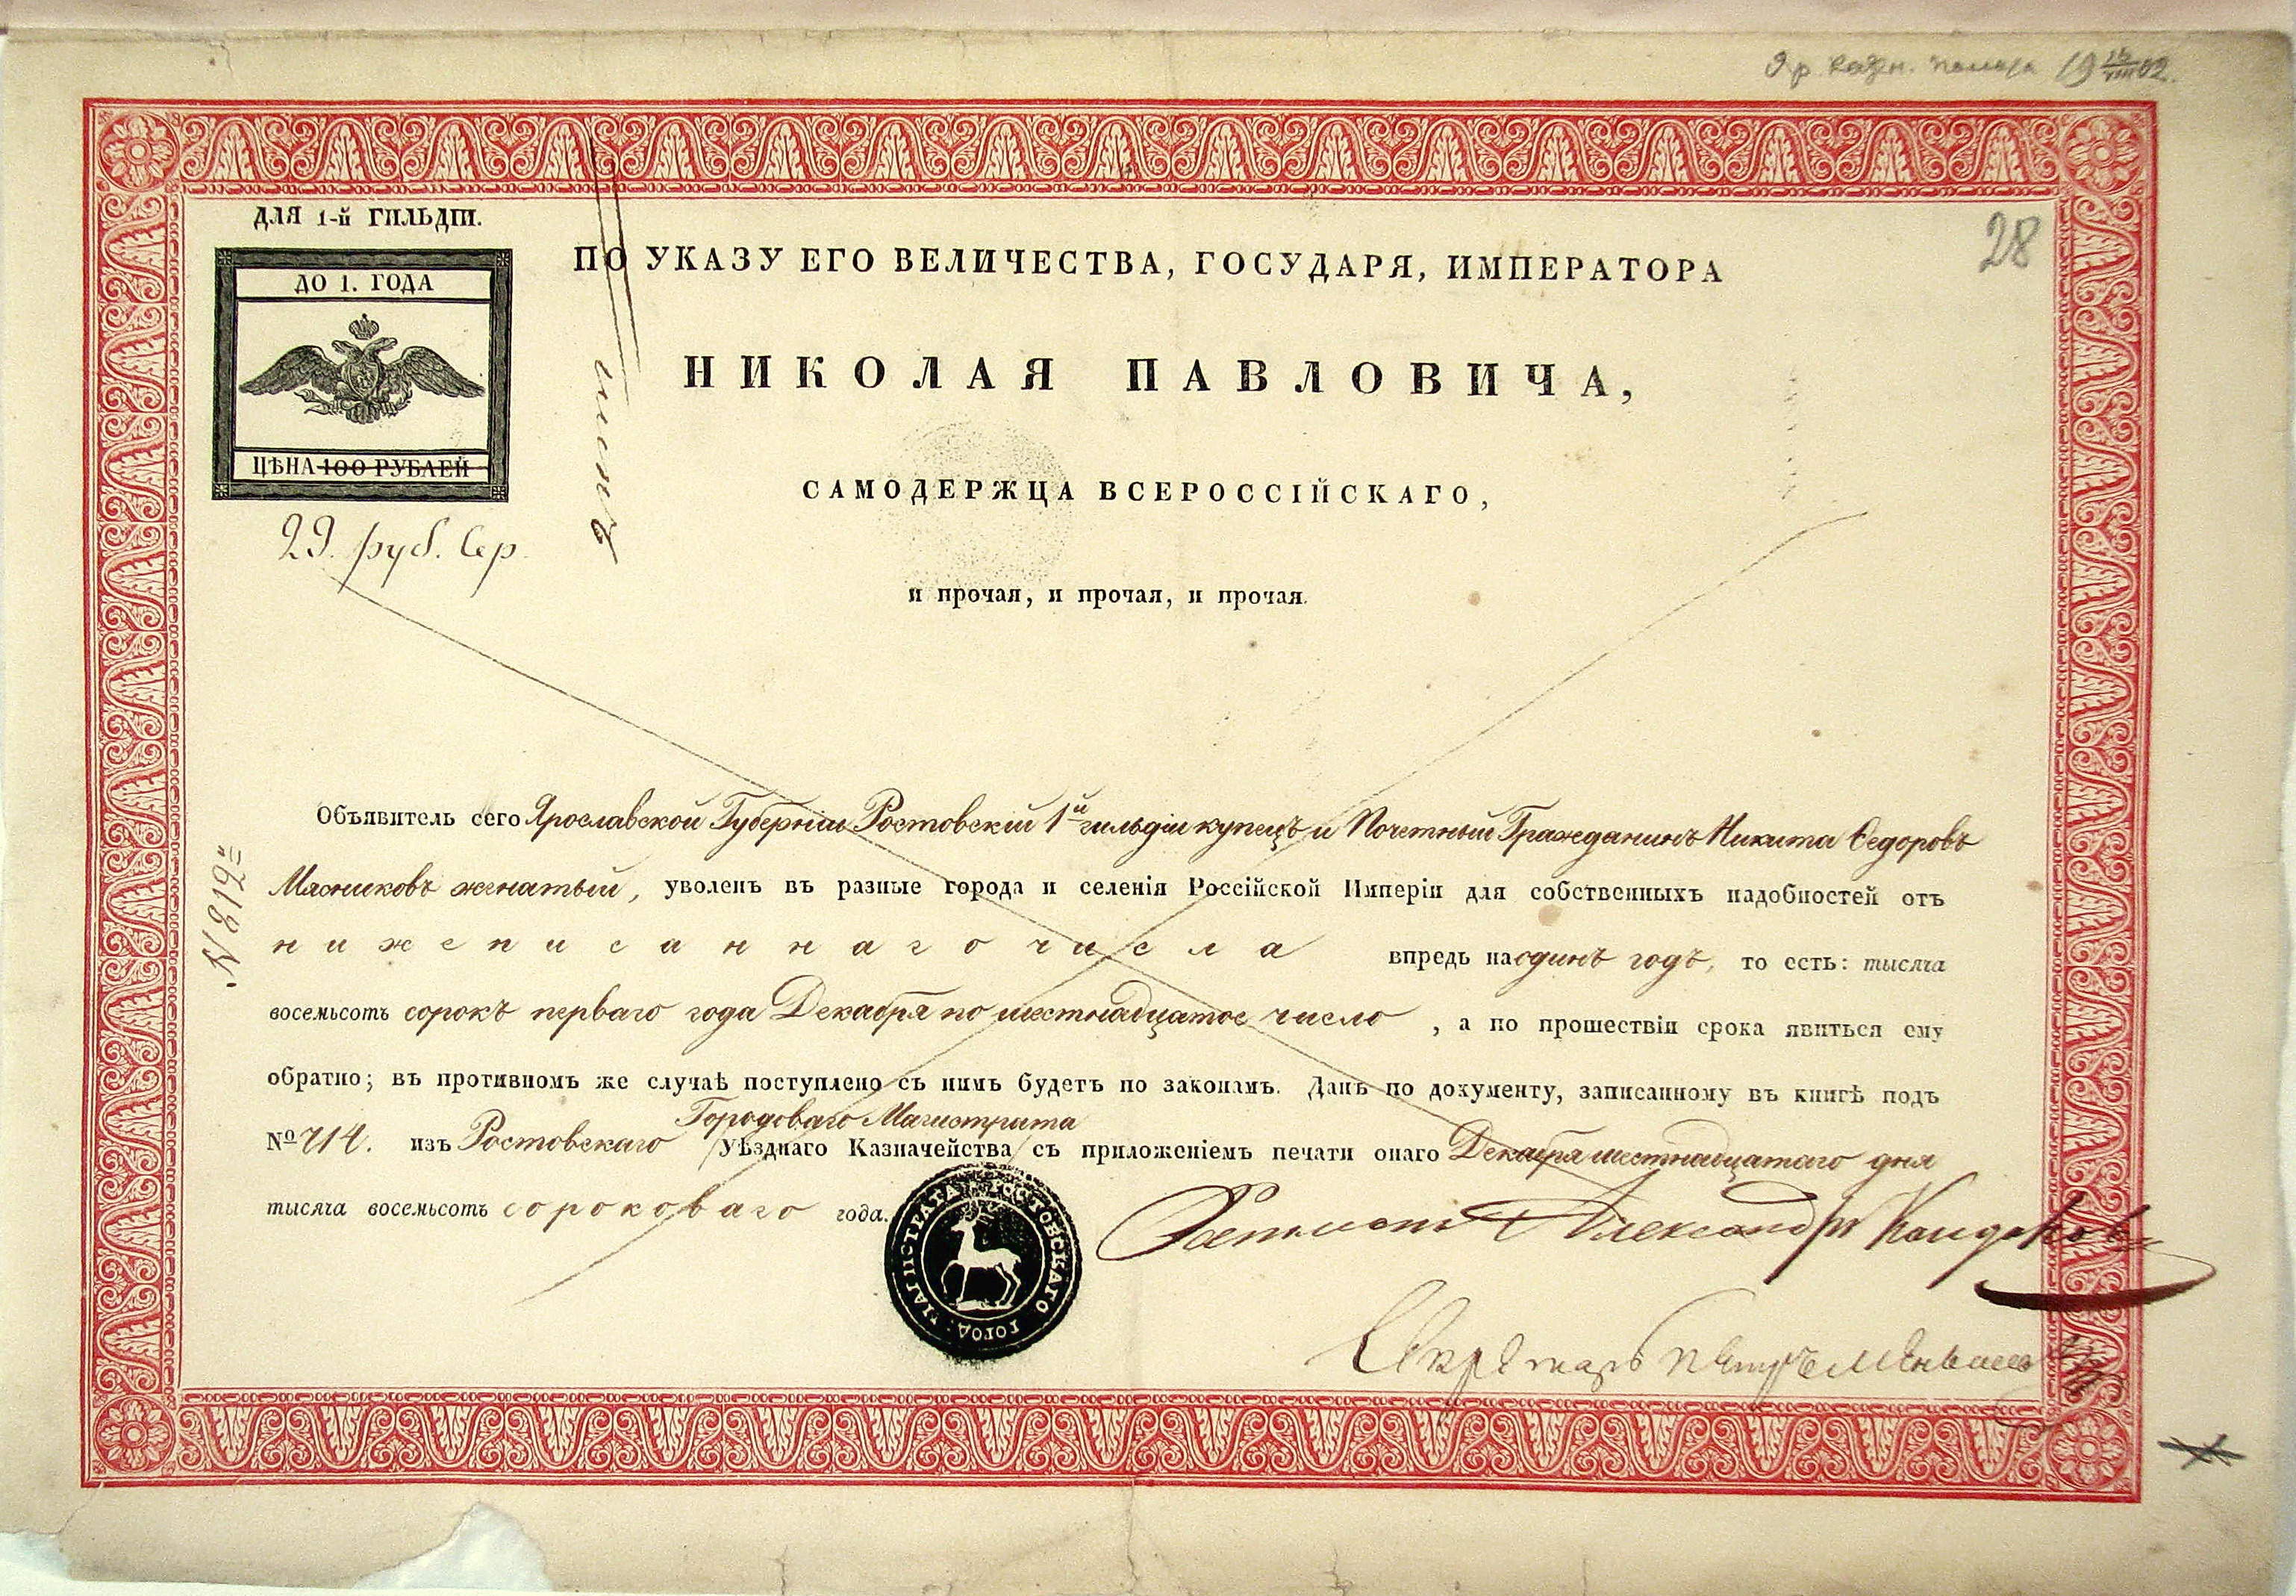 28
ДЛЯ 1-й ГИЛЬДІИ.
ДО 1. ГОДА
ЦѢНА 100 РУБЛЕЙ
29. руб. Сер.
ПО УКАЗУ ЕГО ВЕЛИЧЕСТВА, ГОСУДАРЯ, ИМПЕРАТОРА
НИКОЛАЯ ПАВЛОВИЧА,
САМОДЕРЖЦА ВСЕРОССІЙСКАГО,
и прочая, и прочая, и прочая.
Объявитель сего Ярославской Губерніи Ростовскій 1й гильдіи купецъ и Почетный Гражданинъ Никита Ѳедоровъ
Мясниковъ женатый, уволенъ въ разные города и селенія Россійской Имперіи для собственныхъ надобностей отъ
нижеписаннаго числа впредь на одинъ годъ, то есть: тысяча
восемьсотъ сорокъ перваго года Декабря по шестнадцатое число, а по прошествіи срока явиться ему
обратно; въ противномъ же случаѣ поступлено съ нимъ будетъ по законамъ. Данъ по документу, записанному въ книгѣ подъ
Городоваго Магистрата
№ 714. изъ Ростовскаго /Уѣзднаго Казначейства/ съ приложеніемъ печати онаго Декабря шестнадцатаго дня
тысяча восемьсотъ сороковаго года.
ПЕЧАТЬ РОСТОВСКАГО ГОРОД: МАГИСТРАТА
Александръ
Секретарь Петръ